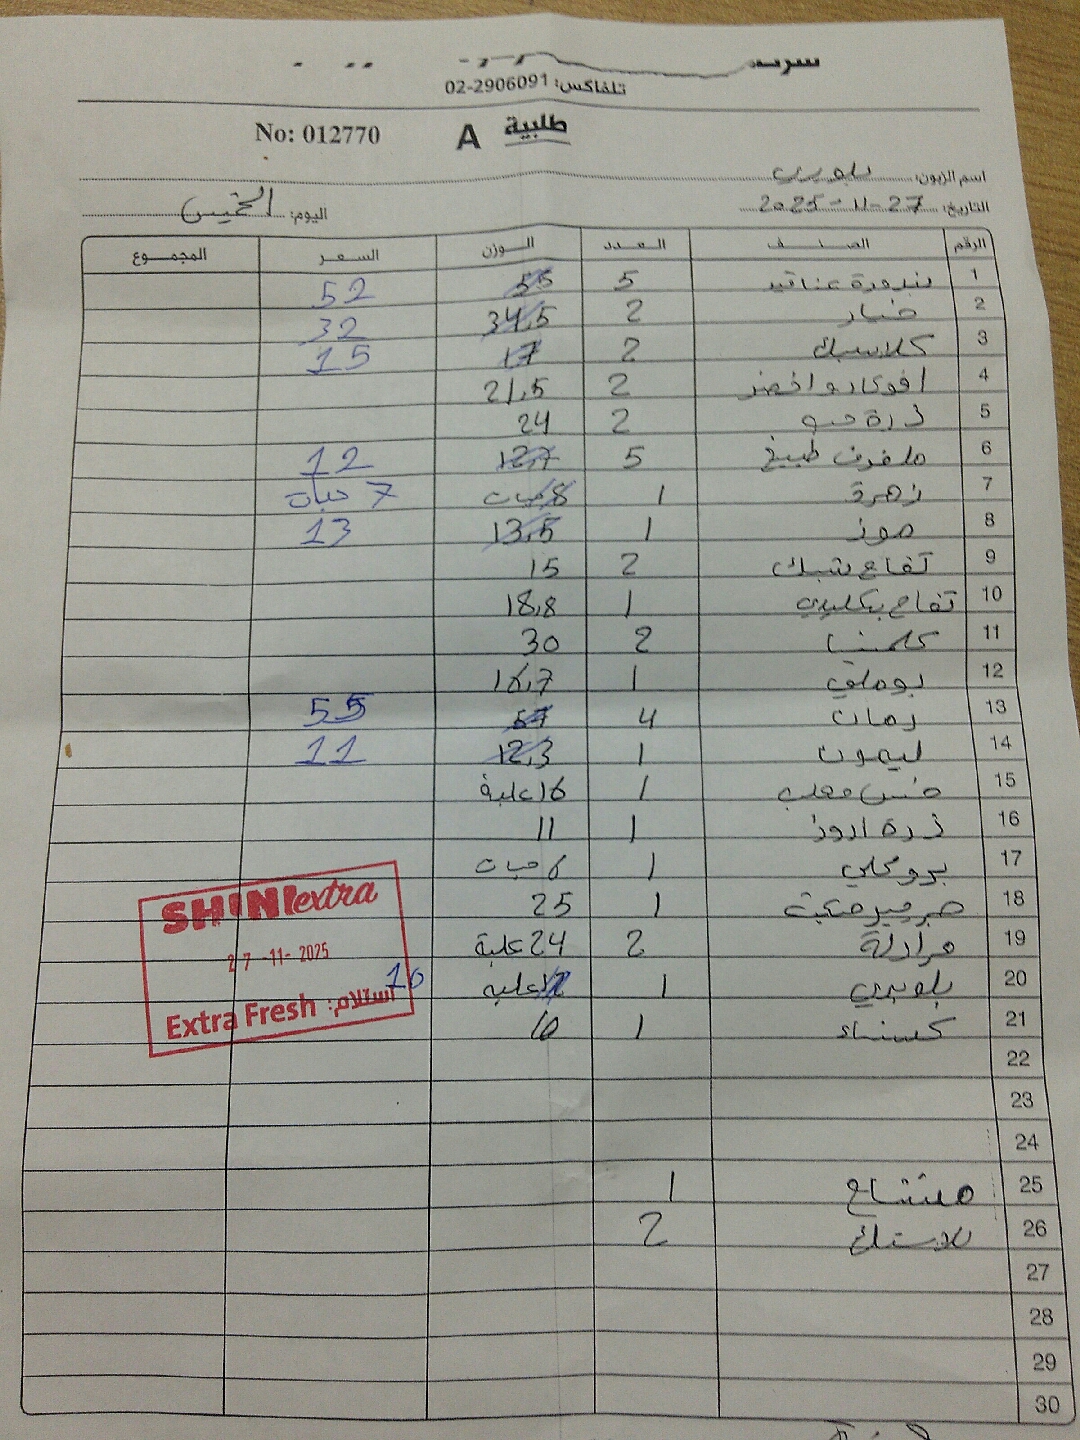 تلفاكس: 02-2906091
طلبية A No: 012770
اسم الزبون:
التاريخ: 27-11-2025 اليوم: الخميس
الرقم الصنف العدد الوزن السعر المجموع
1 بندورة عناقيد 5 55 52
2 خيار 2 34,5 32
3 كلاسيك 2 17 15
4 افوكادو اخضر 2 21,5
5 ذرة حب 2 24
6 ملفوف طبيخ 5 12,7 12
7 زهرة 1 8 حبات 7 حبات
8 موز 1 13,5 13
9 تفاح شبك 2 15
10 تفاح 1 18,8
11 كلمنتا 2 30
12 بوملي 1 16,7
13 رمان 4 57 55
14 ليمون 1 12,3 11
15 خس معلب 1 16 علبة
16 ذرة 1 11
17 بروكلي 1 6 حبات
18 1 25
19 فراولة 2 24 علبة
20 بلوبيري 1 12 علبه 10
21 كستناء 1 10
22
23
24
25 مشتاح 1
26 بلاستك 2
27
28
29
30
SHINI extra
27-11-2025
استلام: Extra Fresh